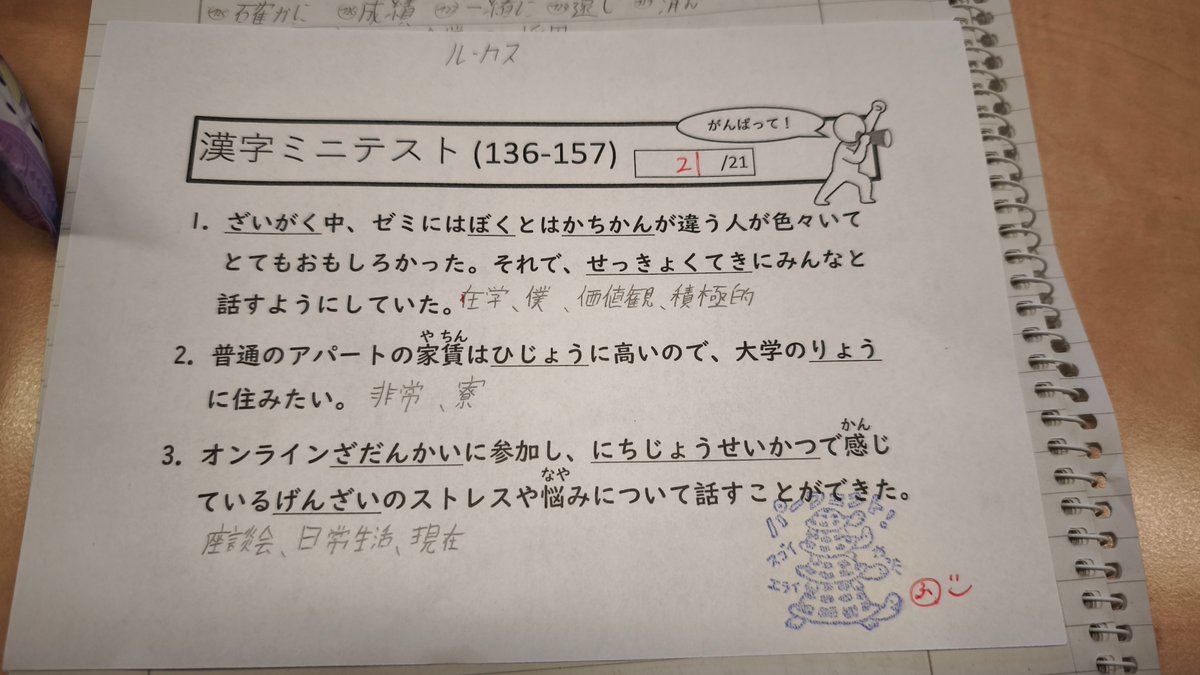 確かに 成績 一緒に 返し 済ん
ル・カス
がんばって！
漢字ミニテスト (136-157) 21 /21
1. ざいがく中、ゼミにはぼくとはかちかんが違う人が色々いて
とてもおもしろかった。それで、せっきょくてきにみんなと
話すようにしていた。在学、僕、価値観、積極的
や ちん
2. 普通のアパートの家賃はひじょうに高いので、大学のりょう
に住みたい。 非常、寮
かん
3. オンラインざだんかいに参加し、にちじょうせいかつで感じ
なや
ているげんざいのストレスや悩みについて話すことができた。
座談会、日常生活、現在
パーフェクト
スゴイ
エライ